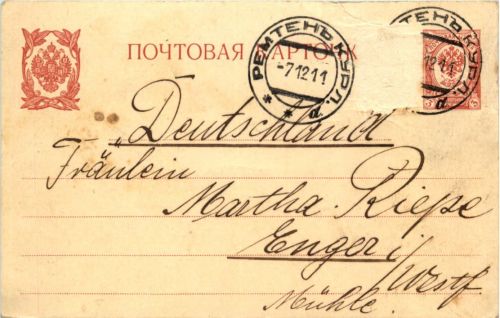 ПОЧТОВАЯ КАРТОЧК
РЕМТЕНЪ КУРЛ.
-7 12 11
* * а
ТЕНЪ КУРЛ.
12 11
* а
„Deutschland
Fräulein
Martha Riepe
Enger i/Westf
Mühle.